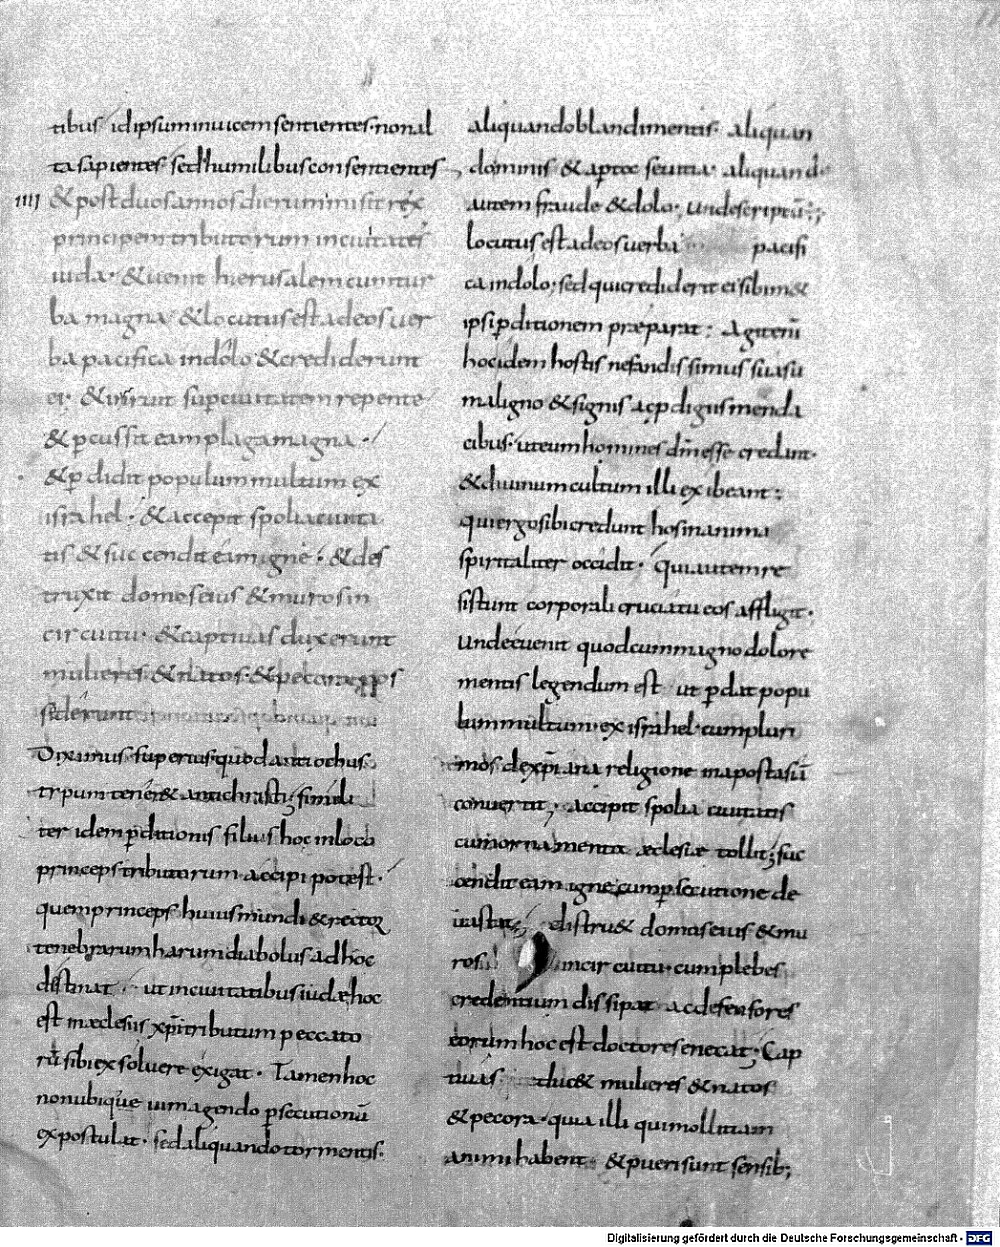 tibus idipsum inuicem sentientes. non al
ta sapientes sed humilibus consentientes
IIII & post duos annos dierum misit rex
principem tributorum in ciuitates
iuda. & uenit hierusalem cum tur
ba magna & locutus est ad eos uer
ba pacifica in dolo & crediderunt
ei. & irruit super ciuitatem repente
& pcussit eam plaga magna.
& pdidit populum multum ex
israhel. & accepit spolia ciuita
tis & succendit eam igne. & des
truxit domos eius & muros in
circuitu. & captiuas duxerunt
mulieres & natos. & pecora pos
siderunt
Diximus superius quod antiochus
tipum tener& antichristi; simili
ter idem pditionis filius hoc in loco
princeps tributorum accipi potest.
quem princeps huius mundi & rector
tenebrarum harum diabolus ad hoc
destinat. ut in ciuitatibus iudæ hoc
est in æclesiis xp̄i tributum peccato
rū sibi exsoluere exigat. Tamen hoc
non ubique ui magendo psecutionū
expostulat. sed aliquando tormentis.
aliquando blandimentis. aliquan
do minis & apte seuitia. aliquando
autem fraude & dolo. unde scriptū;
locutus est ad eos uerba pacifi
ca in dolo; sed qui crediderit ei sibim&
ipsi pditionem præparat: Agit enī
hoc idem hostis nefandissimus suasu
maligno & signis ac pdigiis menda
cibus. ut eum homines dm̄ esse credant.
& diuinum cultum illi exibeant;
qui ergo sibi credunt hos in anima
spiritaliter occidit. Qui autem re
sistunt corporali cruciatu eos affligit.
unde euenit quod cum magno dolore
mentis legendum est ut pdat popu
lum multum. ex israhel. cum pluri
mos de xp̄iana religione in apostasiā
conuertit, accipit spolia ciuitatis
cum ornamenta æclesiæ tollit; suc
cendit eam igne cum psecutione de
uastat; distru& domos eius & mu
ros in circuitu. cum plebes
credentium dissipat ac defensores
eorum hoc est doctores enecat; Cap
tiuas duc& mulieres & natos
& pecora. quia illi qui mollitiam
animi habent. & pueri sunt sensib;
Digitalisierung gefördert durch die Deutsche Forschungsgemeinschaft - DFG